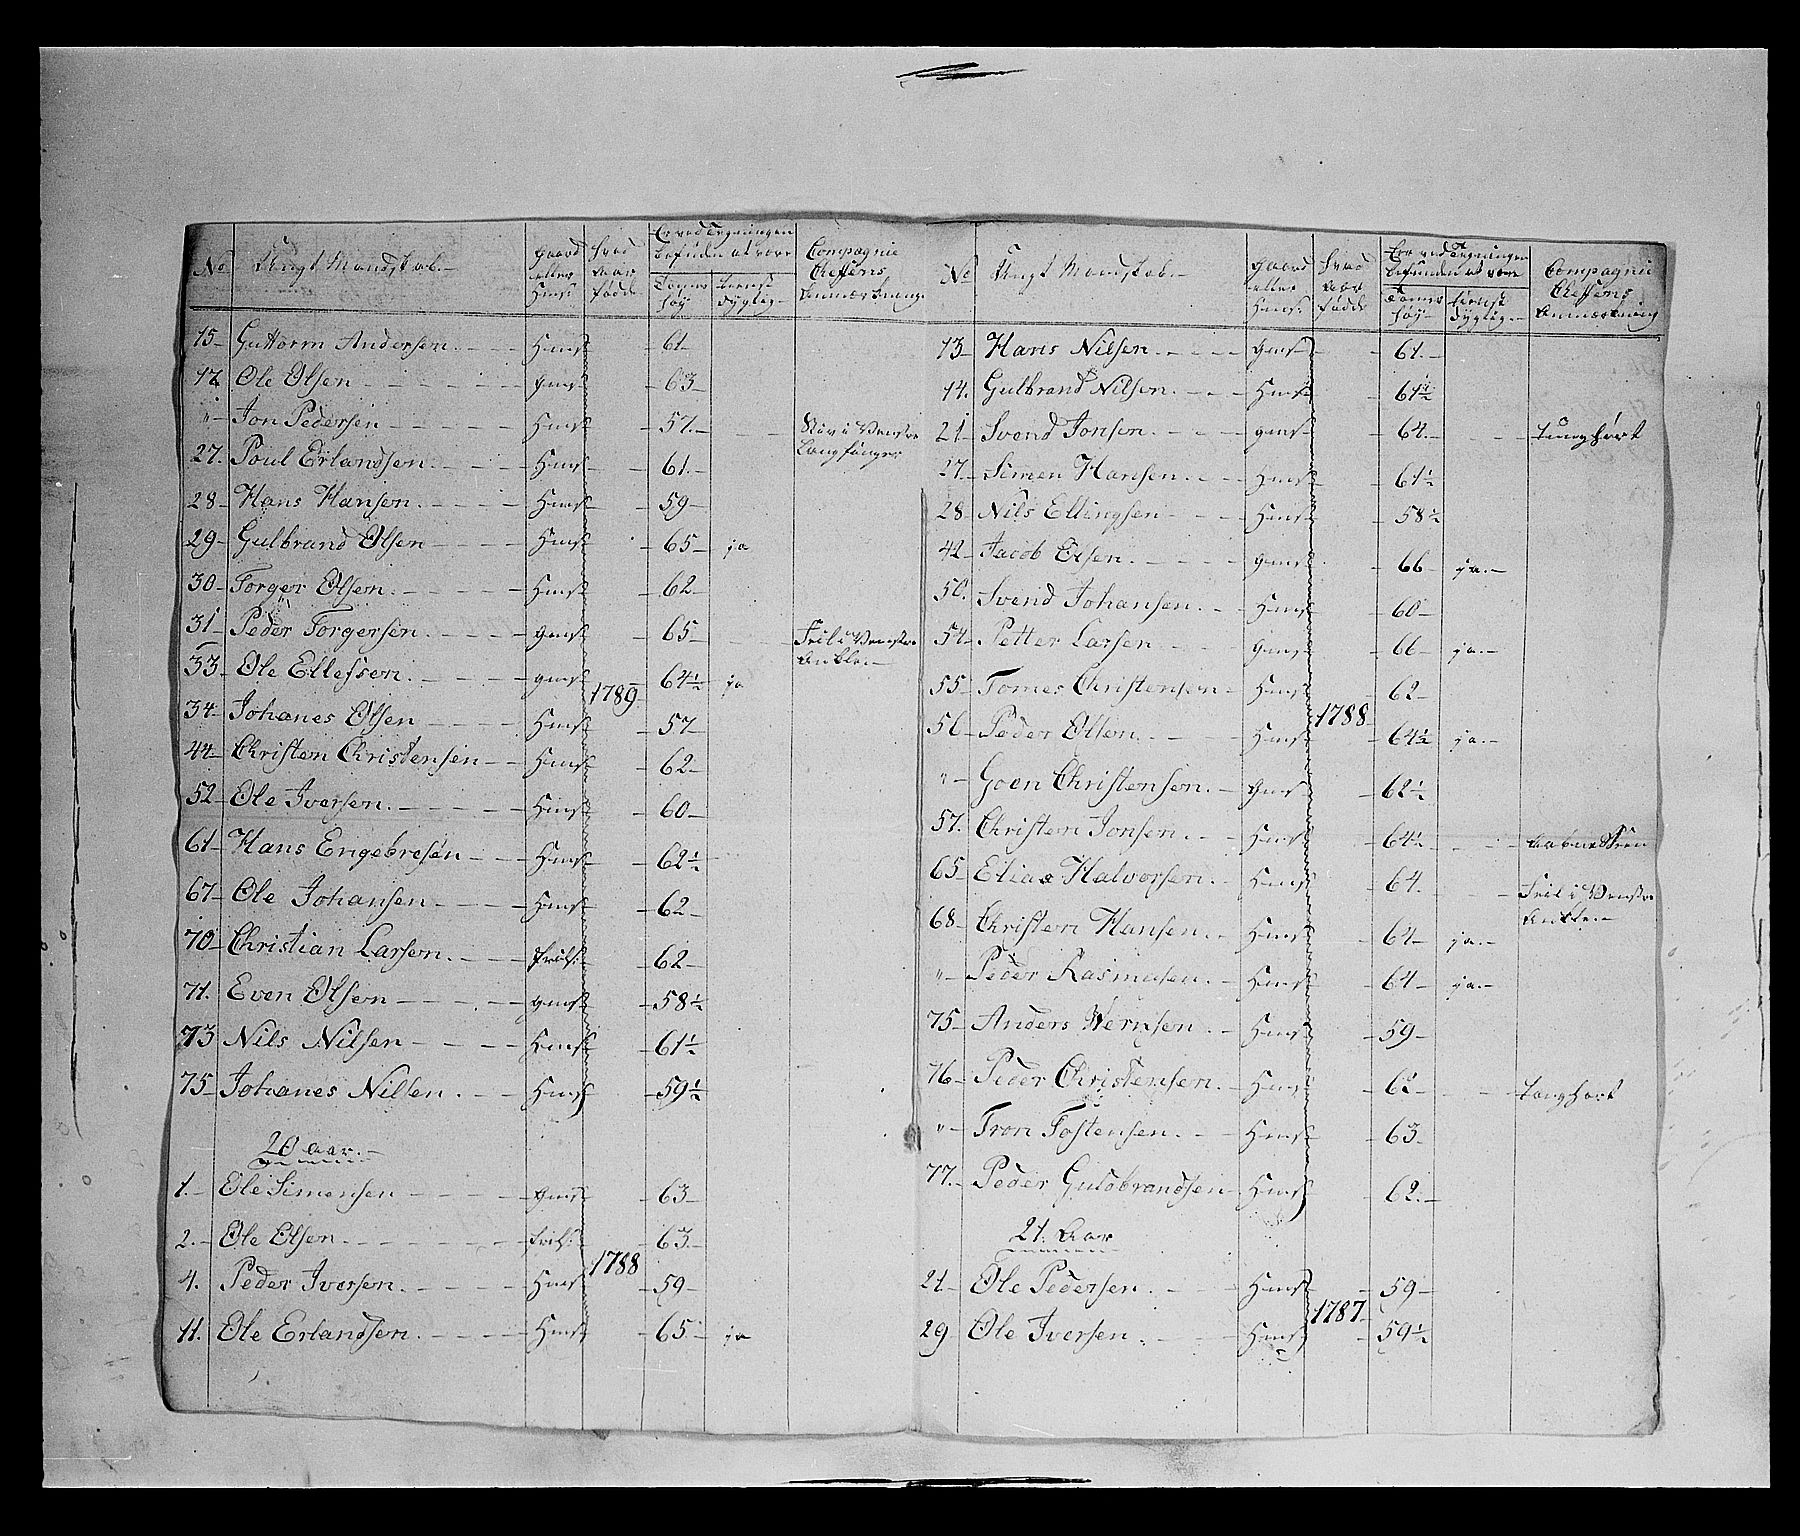 No Ungt Mandskab.- gaard eller huus: hvad aar fødde Er ved Tegningen befunden at være Tomer høy tienst dygtig Compagnie Cheffens Anmærkning
15- Guttorm Andersen huus 61
17 Ole Olsen gaar 63
"- Jon Pedersen huus 57 Venstre Langfinger
27. Poul Erlandsen huus 61.
28- Hans Hansen huus 59
29- Gulbrand Olsen huus 65 ja
30- Torger Olsen huus 62
31- Peder Torgersen gaar 65 Feil i Venstre Ankle.-
33 Ole Ellefsen gaar 1789 64½ ja
34- Johanes Olsen huus 57
44- Christen Christensen huus 62
52- Ole Iversen huus 60
61- Hans Engebresen huus 62½
67- Ole Johansen huus 62
70- Christian Larsen 62
71. Even Olsen gaar 58½
73 Nils Nilsen huus 61½
75- Johanes Nilsen huus 59½
20 aar.-
1.- Ole Simensen gaar 63
2.- Ole Olsen 63
4. Peder Iversen huus 1788 59
11. Ole Erlandsen huus 65 ja
No Ungt Mandskab.- gaard eller huus: hvad aar fødde Er ved Tegningen befunden at være Tomer høy tienst dygtig Compagnie Cheffens Anmærkning
13- Hans Nilsen gaar 61.
14. Gulbrand Nilsen huus 61½
21- Svend Jonsen gaar 64. Tunghørt
27- Simen Hansen huus 61½
28- Nils Ellingsen huus 58½
42- Jacob Olsen gaar 66 ja.-
50. Svend Johansen huus 60
54- Petter Larsen gaar 66 ja.-
55- Tomes Christensen huus 62
56- Peder Olsen huus 1788 64½ ja.-
"- Goen Christensen gaar 62½
57. Christen Jonsen huus 64½ aabne
65- Elias Halvorsen huus 64. Feil i Venstre Ankle.-
68- Christen Hansen huus 64 ja.-
"- Peder Rasmusen huus 64 ja.-
75- Anders huus 59
76- Peder Christensen huus 62 Tunghørt
"- Tron Tostensen huus 63
77.- Peder Guldbrandsen huus 62.
21. Aar
21- Ole Pedersen huus 59
29 Ole Iversen huus 1787 59½